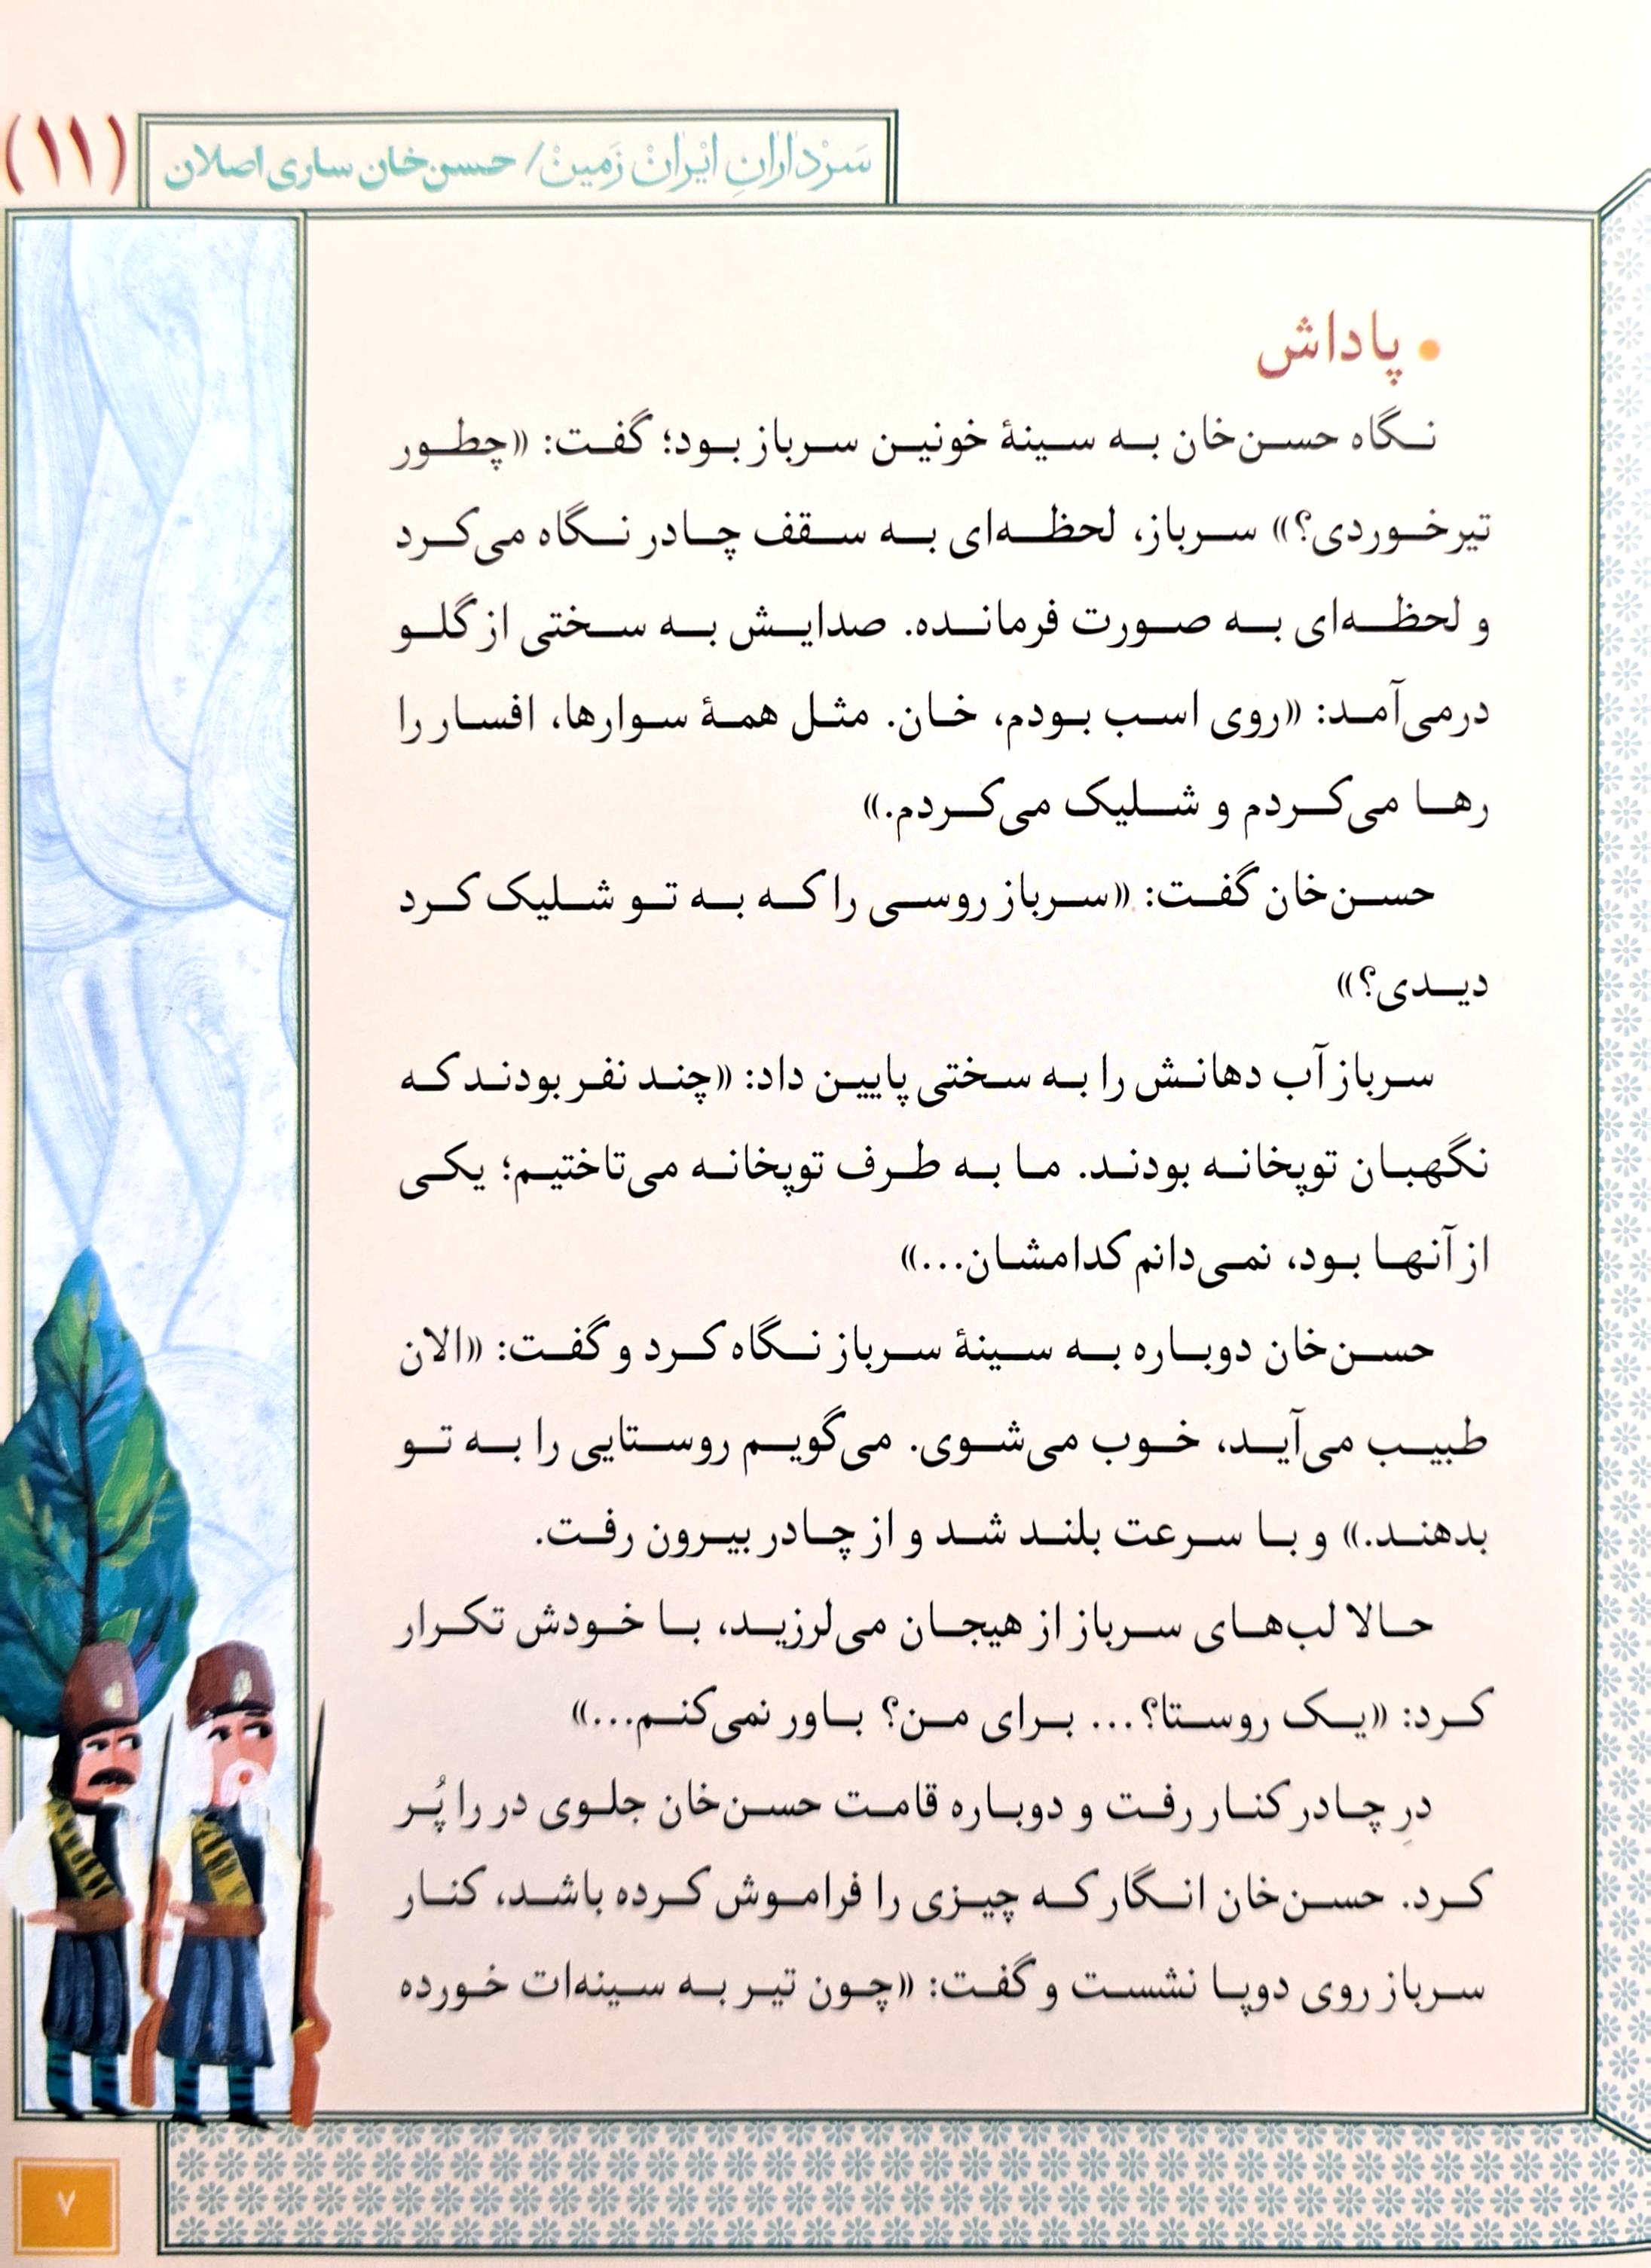 سَرْدارانِ ایْرانْ زَمینْ / حسن‌خان ساری اصلان
(۱۱)
• پاداش
نگاه حسن‌خان به سینۀ خونین سرباز بود؛ گفت: «چطور
تیرخوردی؟» سرباز، لحظه‌ای به سقف چادر نگاه می‌کرد
و لحظه‌ای به صورت فرمانده. صدایش به سختی از گلو
درمی‌آمد: «روی اسب بودم، خان. مثل همۀ سوارها، افسار را
رها می‌کردم و شلیک می‌کردم.»
حسن‌خان گفت: «سرباز روسی را که به تو شلیک کرد
دیدی؟»
سرباز آب دهانش را به سختی پایین داد: «چند نفر بودند که
نگهبان توپخانه بودند. ما به طرف توپخانه می‌تاختیم؛ یکی
از آنها بود، نمی‌دانم کدامشان...»
حسن‌خان دوباره به سینۀ سرباز نگاه کرد و گفت: «الان
طبیب می‌آید، خوب می‌شوی. می‌گویم روستایی را به تو
بدهند.» و با سرعت بلند شد و از چادر بیرون رفت.
حالا لب‌های سرباز از هیجان می‌لرزید، با خودش تکرار
کرد: «یک روستا؟... برای من؟ باور نمی‌کنم...»
درِ چادر کنار رفت و دوباره قامت حسن‌خان جلوی در را پُر
کرد. حسن‌خان انگار که چیزی را فراموش کرده باشد، کنار
سرباز روی دوپا نشست و گفت: «چون تیر به سینه‌ات خورده
۷